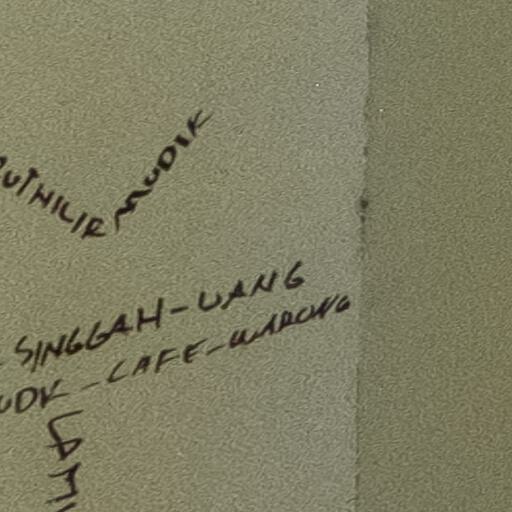 HILIR MUDIK
SINGGAH-UANG
-CAFE-WARONG